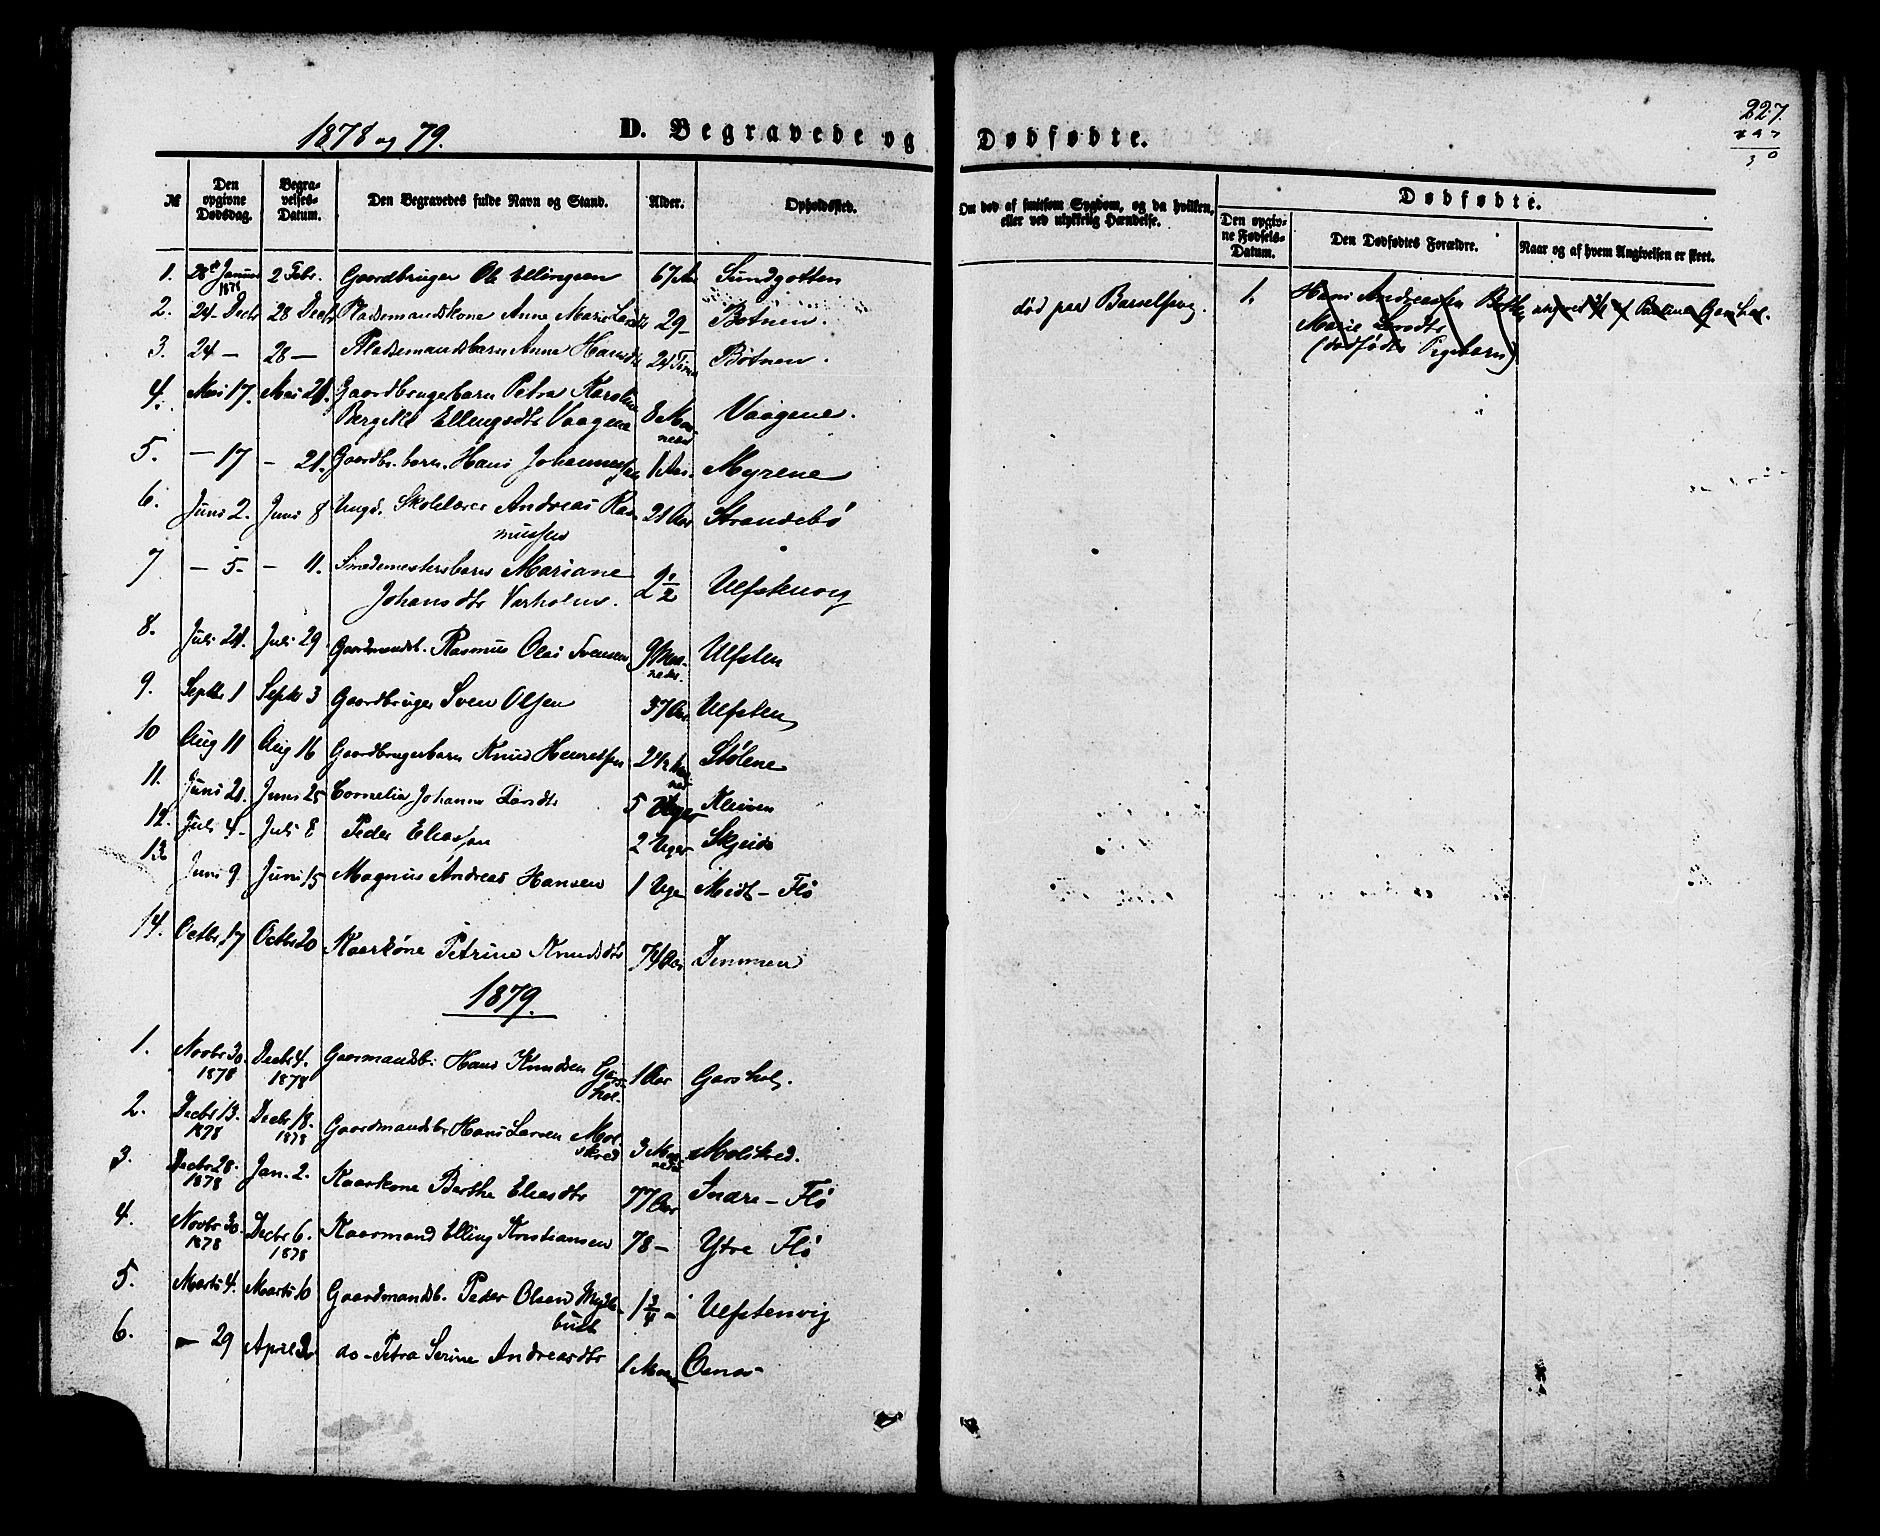 1878 og 79.
D. Begravede og Dødfødte.
227.
№ Den opgivne Dødsdag. Begravelses-Datum. Den Begravedes fulde Navn og Stand. Alder. Opholdssted. Om død af smitsom Sygdom, og da hvilken, eller ved ulykkelig Hændelse. Dødfødte. Den opgivne Fødsels-Datum. Den Dødfødtes Forældre. Naar og af hvem Angivelsen er skeet.
1. 28de Januar 1878 2 Febr. Gaardbruger Ole Ellingsen 67 Aar Sundgotten
2. 24 Decbr 28 Decbr Pladsemandskone Anne Marie Larsdtr 29 — Botnen. død paa Barselseng. 1. Hans Andreassen
Marie Larsdtr
(dødfødt Pigebarn)
3. 24 — 28 — Pladsemandsbarn Anne Hansdtr 24 Timer Botnen.
4. Mai 17. Mai 21. Gaardbrugerbarn Petra Karoline
Bergitte Ellingsdtr Vaagene 8 Maaneder Vaagene.
5. — 17 — 21. Gaardbr. barn. Hans Johannessen 1 Aar. Myrene
6. Juni 2. Juni 8 Ungk. Skolelærer Andreas Rasmussen 21 Aar Strandebø
7 — 5. — 11. Smedemestersbarn Mariane
Johansdtr Varholm. 2 1/2 Ulfstenvig
8. Juli 24. Juli 29. Gaardmandsb. Rasmus Olai Svensen 9 Maaneder. Ulfsten
9. Septbr 1 Septbr 3 Gaardbruger Sven Olsen 37 Aar Ulfsten
10 Aug 11 Aug 16 Gaardbrugerbarn Knud 2 1/2 Stølene
11. Juni 21. Juni 25 Cornelia Johanne Larsdtr 5 Uger Kleiven
12. Juli 4. Juli 8 Peder Eliassen 2 Uger
13. Juni 9. Juni 15 Magnus Andreas Hansen 1 Uge Midt-Flø
14. Octbr 17 Octbr 20 Kaarkone Petrine Knudsdtr 74 Aar Dimmen
1879.
1. Novbr 30. 1878 Decbr 4. 1878 Gaarmandsb. Hans Knudsen Garshol. 1 Aar Garshol.
2. Decbr 13. 1878 Decbr 18. 1878 Gaardmandsbr Hans Larsen Molskred 3 Maaneder Molskred.
3. Decbr 28. 1878 Jan. 2. Kaarkone Berthe Eliasdtr 77 Aar Indre-Flø
4. Novbr 30. 1878 Decbr 6. 1878 Kaarmand Elling Kristiansen 78 — Ytre Flø
5. Marts 4. Marts 10 Gaardmandsb. Peder Olsen Myklebust 1 3/4 — Ulfstenvig
6. — 29 April do — Petra Serine Andreasdtr 1 Maaned